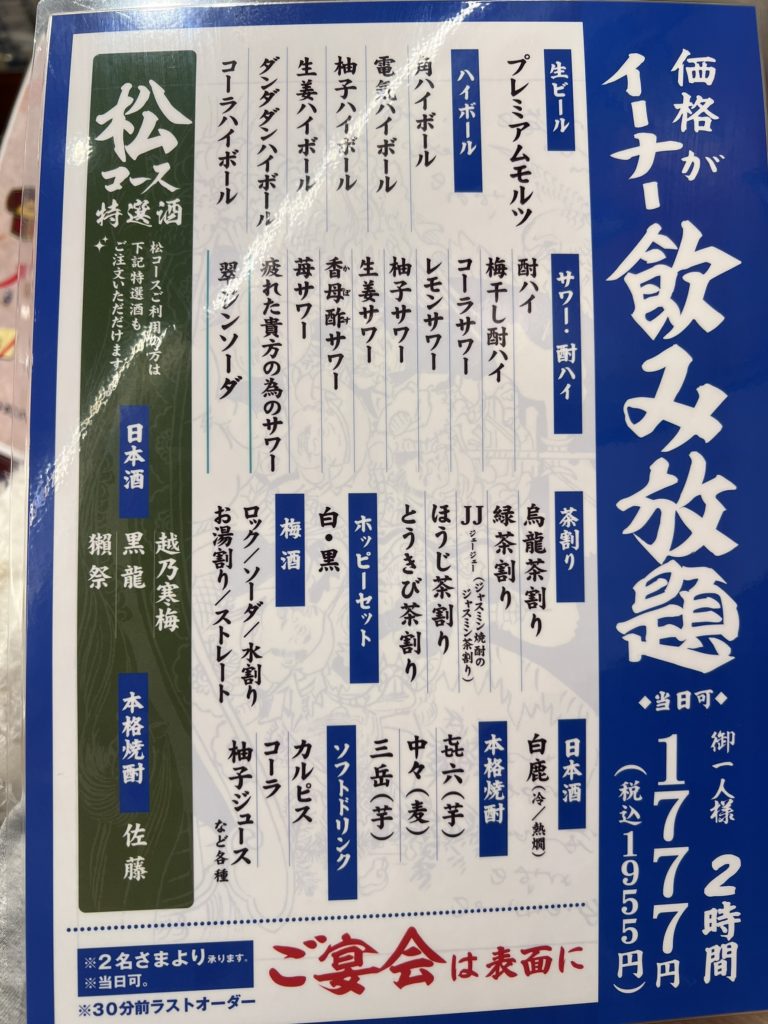 価格が
イーナー
飲み放題
◆当日可◆
御一人様 2時間
1777円
(税込1955円)
生ビール
プレミアムモルツ
ハイボール
角ハイボール
電気ハイボール
柚子ハイボール
生姜ハイボール
ダンダダンハイボール
コーラハイボール
サワー・酎ハイ
酎ハイ
梅干し酎ハイ
コーラサワー
レモンサワー
柚子サワー
生姜サワー
香母酢サワー
かぼす
苺サワー
疲れた貴方の為のサワー
翠ジンソーダ
茶割り
烏龍茶割り
緑茶割り
JJ(ジャスミン焼酎のジャスミン茶割り)
ジェージェー
ほうじ茶割り
とうきび茶割り
ホッピーセット
白・黒
梅酒
ロック/ソーダ/水割り
お湯割り/ストレート
日本酒
白鹿(冷/熱燗)
本格焼酎
㐂六(芋)
中々(麦)
三岳(芋)
ソフトドリンク
カルピス
コーラ
柚子ジュース
など各種
松
コース
特選酒
松コースご利用の方は
下記特選酒も
ご注文いただけます
日本酒
越乃寒梅
黒龍
獺祭
本格焼酎
佐藤
ご宴会は表面に
※2名さまより承ります。
※当日可。
※30分前ラストオーダー